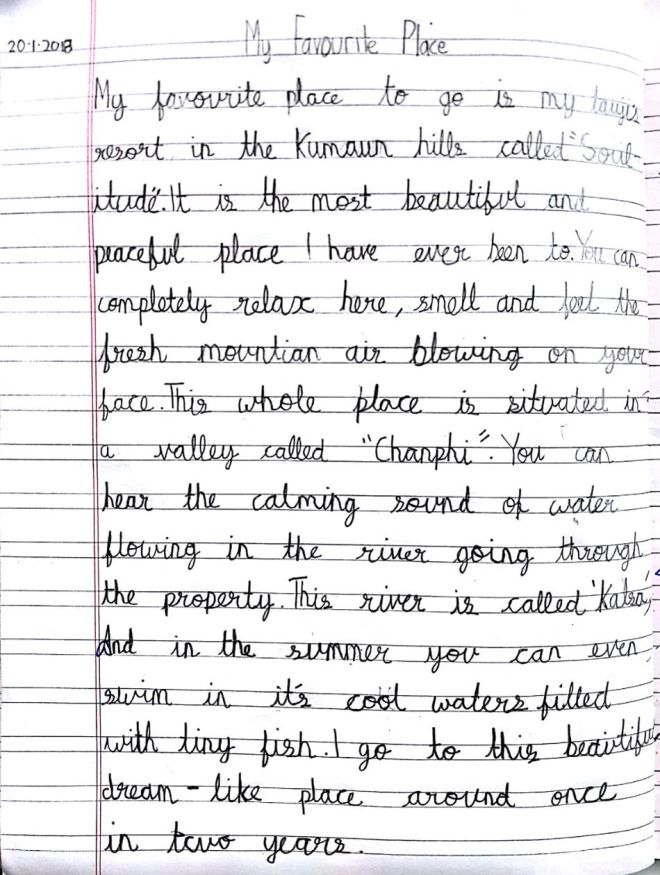 20.1.2018
My Favourite Place
My favourite place to go is my tauji's
resort in the Kumaun hills called "Soul-
itude". It is the most beautiful and
peaceful place I have ever been to. You can
completely relax here, smell and feel the
fresh mountian air blowing on your
face. This whole place is situated in
a valley called "Chanphi". You can
hear the calming sound of water
flowing in the river going through
the property. This river is called 'Kalsa'
And in the summer you can even
swim in it's cool waters filled
with tiny fish. I go to this beautiful
dream-like place around once
in two years.